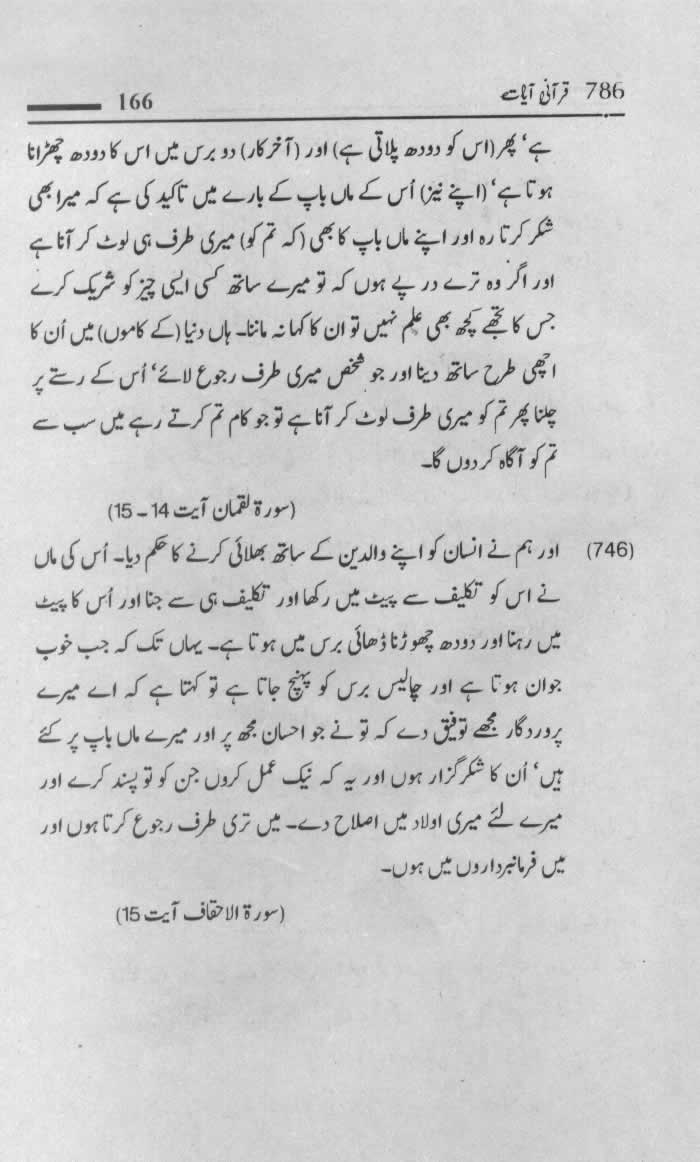 786 قرآنی آیات 166
ہے‘ پھر (اس کو دودھ پلاتی ہے) اور (آخرکار) دو برس میں اس کا دودھ چھڑانا
ہوتا ہے‘ (اپنے نیز) اُس کے ماں باپ کے بارے میں تاکید کی ہے کہ میرا بھی
شکر کرتا رہ اور اپنے ماں باپ کا بھی (کہ تم کو) میری طرف ہی لوٹ کر آنا ہے
اور اگر وہ ترے درپے ہوں کہ تو میرے ساتھ کسی ایسی چیز کو شریک کرے
جس کا تجھے کچھ بھی علم نہیں تو ان کا کہا نہ ماننا۔ ہاں دنیا (کے کاموں) میں اُن کا
اچھی طرح ساتھ دینا اور جو شخص میری طرف رجوع لائے‘ اُس کے رستے پر
چلنا پھر تم کو میری طرف لوٹ کر آنا ہے تو جو کام تم کرتے رہے میں سب سے
تم کو آگاہ کر دوں گا۔
(سورۃ لقمان آیت 14 - 15)
(746) اور ہم نے انسان کو اپنے والدین کے ساتھ بھلائی کرنے کا حکم دیا۔ اُس کی ماں
نے اس کو تکلیف سے پیٹ میں رکھا اور تکلیف ہی سے جنا اور اُس کا پیٹ
میں رہنا اور دودھ چھوڑنا ڈھائی برس میں ہوتا ہے۔ یہاں تک کہ جب خوب
جوان ہوتا ہے اور چالیس برس کو پہنچ جاتا ہے تو کہتا ہے کہ اے میرے
پروردگار مجھے توفیق دے کہ تو نے جو احسان مجھ پر اور میرے ماں باپ پر کئے
ہیں‘ اُن کا شکر گزار ہوں اور یہ کہ نیک عمل کروں جن کو تو پسند کرے اور
میرے لئے میری اولاد میں اصلاح دے۔ میں تری طرف رجوع کرتا ہوں اور
میں فرمانبرداروں میں ہوں۔
(سورۃ الاحقاف آیت 15)